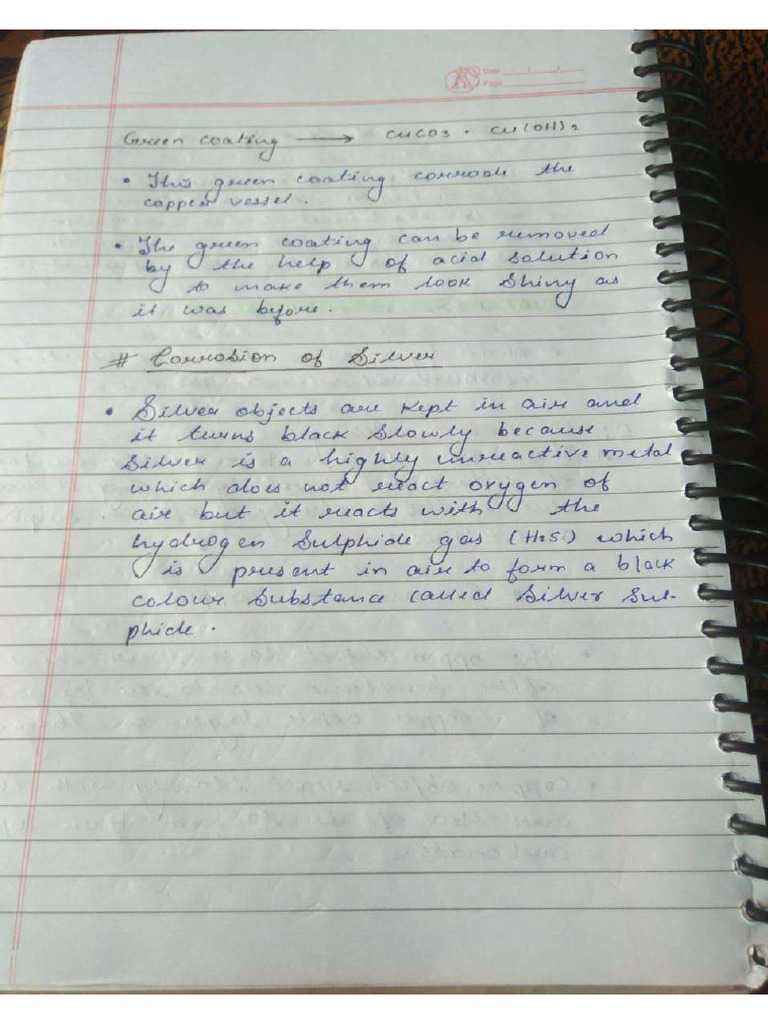 Date
Page
Green coating → CuCO3 . Cu(OH)2
• This green coating corrode the
copper vessel.
• The green coating can be removed
by the help of acid solution
to make them look shiny as
it was before.
# Corrosion of Silver
• Silver objects are kept in air and
it turns black slowly because
silver is a highly unreactive metal
which does not react oxygen of
air but it reacts with the
hydrogen sulphide gas (H2S) which
is present in air to form a black
colour substance called silver sul-
phide.